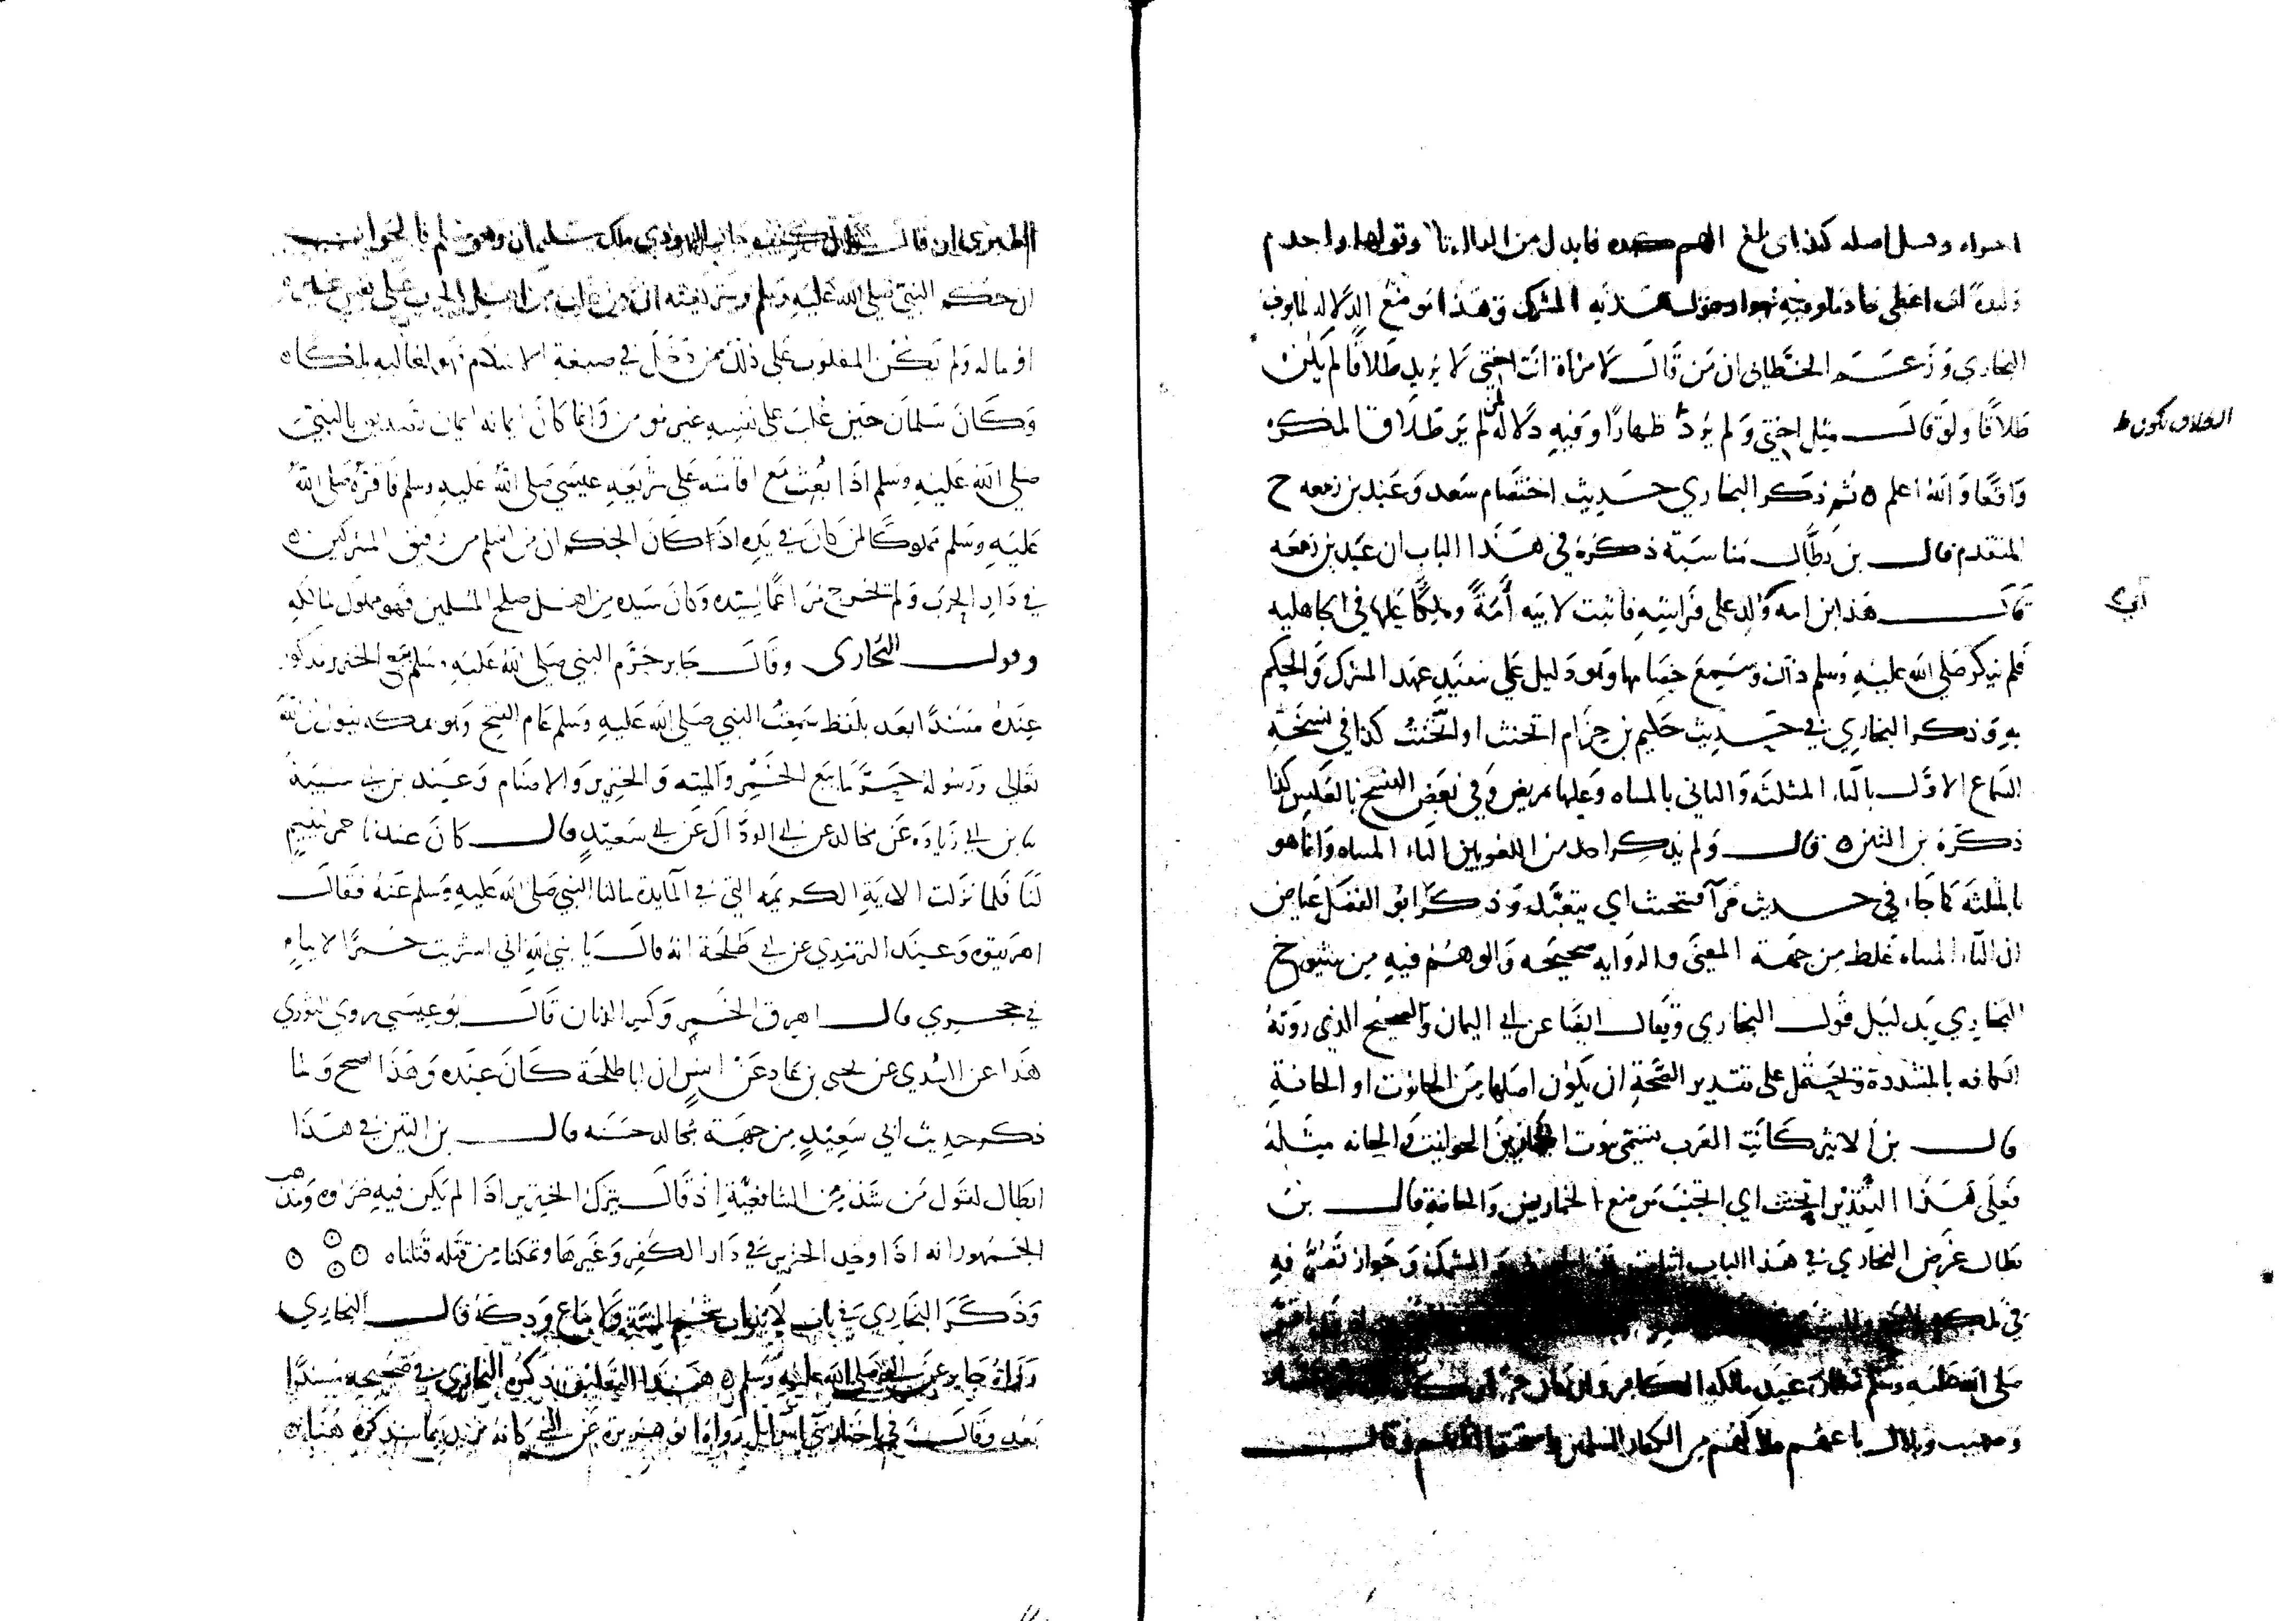 اسواء وقيل اصله كبده اى بلغ الهم كبده فابدل من الدال تاء وقولها واخدم
وليدة اى اعطى خادما وفيه جواز قبول هدية المشرك وهذا نوع الدلالة لما بوب
البخاري وزعم الخطابى ان من قال لامراة انت اختى لا يريد طلاقا لم يكن
طلاقا ولو قال مثل اختي ولم يرد ظهارا وفيه دلالة لمن لم ير طلاق المكره
الطلاق تكون ط
واقعا والله اعلم ه ثم ذكر البخاري حديث اختصام سعد وعبد بن زمعه ح
المتقدم قال بن بطال مناسبة ذكره في هذا الباب ان عبد بن زمعه
قال هذا ابن امه ولد على فراشه فاثبت لابيه أمةً وملكا عليها في الجاهليه
أبي
فلم ينكر صلى الله عليه وسلم ذلك وسمع خصامها وهو دليل على تنفيذ عهد المشرك والحكم
به وذكر البخاري في حديث حكيم بن حزام اتحنث او اتحنت كذا في نسخة
السماع الاول بالثاء المثلثه والثاني بالمثناه وعليها تمريض وفي بعض النسخ بالعكس كذا
ذكره بن التين ه قال ولم يذكر احد من اللغويين التاء المثناه وانما هو
بالمثلثه كما جاء في حديث حرآ فتحنث اي يتعبد وذكر ابو الفضل عياض
ان التاء المثناه غلط من جهة المعنى والروايه صحيحه والوهم فيه من شيوخ
البخاري بدليل قول البخاري ويقال ايضا عن ابي اليمان والصحيح الذي روته
الكافه بالمشددة ويحتمل على تقدير الصحة ان يكون اصلها من الحانوت او الحانة
قال بن الاثير كانت العرب تسمي بيوت الخمارين الحوانيت والحانه مثله
فعلى هذا التقدير اتحنت اي اتجنب موضع الخمارين والحانة قال بن
بطال غرض البخاري في هذا الباب اثبات والمشرك وجواز تصرفه فيه
في ملكه
صلى الله عليه وسلم عند مالكه الكافر وان
وصهيب وبلال باعهم مالكهم من الكفار المسلمين واستحقوا اثمانهم وقال
الطبري ان قال قائل كيف جاز لليهودي ملك سلمان وهو مسلم فالجواب
ان حكم النبي صلى الله عليه وسلم وشريعته ان من غلب من اهل الحرب على نفس غيره
او ماله ولم يكن المغلوب على ذلك ممن دخل في صبغة الاسلام فهو لغالبه ملكا ه
وكان سلمان حين غلب على نفسه غير مومن وانما كان ايمانه ايمان تصديق بالنبي
صلى الله عليه وسلم اذا بعث مع اقامته على شريعه عيسى صلى الله عليه وسلم فاقره صلى الله
عليه وسلم مملوكا لمن كان في يده اذ كان الحكم ان من اسلم من رقيق المشركين ه
في دار الحرب ولم يخرج مراغما لسيده وكان سيده من اهل صلح المسلمين فهو مملوك لمالكه
وقول البخارى وقال جابر حرم النبي صلى الله عليه وسلم بيع الخنزير مذكور
عنده مسندا بعد بلفظ سمعت النبي صلى الله عليه وسلم عام الفتح وهو بمكه يقول ان الله
تعالى ورسوله حرما بيع الخمر والميته والخنزير والاصنام وعند بن ابي شيبة
ثنا بن ابي زيادة عن مجالد عن ابي الوداك عن ابي سعيد قال كان عندنا خمر ليتيم
لنا فلما نزلت الايه الكريمه التي في المآيدة سالنا النبي صلى الله عليه وسلم عنه فقال
اهريقوه وعند الترمذي عن ابي طلحة انه قال يا نبي الله اني اشتريت خمرا لايتام
في حجري قال اهرق الخمر وكسر الدنان قال بو عيسى روى الثوري
هذا عن السدي عن يحيى بن عباد عن انس ان ابا طلحة كان عنده وهذا اصح ولما
ذكر حديث ابي سعيد من جهة مجالد حسنه قال بن التين في هذا
ابطال لقول من شذ من الشافعية اذ قال يترك الخنزير اذا لم يكن فيه ضراوه ومذهب
الجمهور انه اذا وجد الخنزير في دار الكفر وغيرها وتمكنا من قتله قتلناه ه
وذكر البخاري في باب لا يذاب شحم الميتة ولا يباع ودكه قال البخاري
رواه جابر عن النبي صلى الله عليه وسلم ه هذا التعليق ذكره البخاري في صحيحه مسندا
بعد وقال في اخبار بني اسرائيل رواه ابو هريرة عن النبي كانه يريد بما سنذكره هنا ه